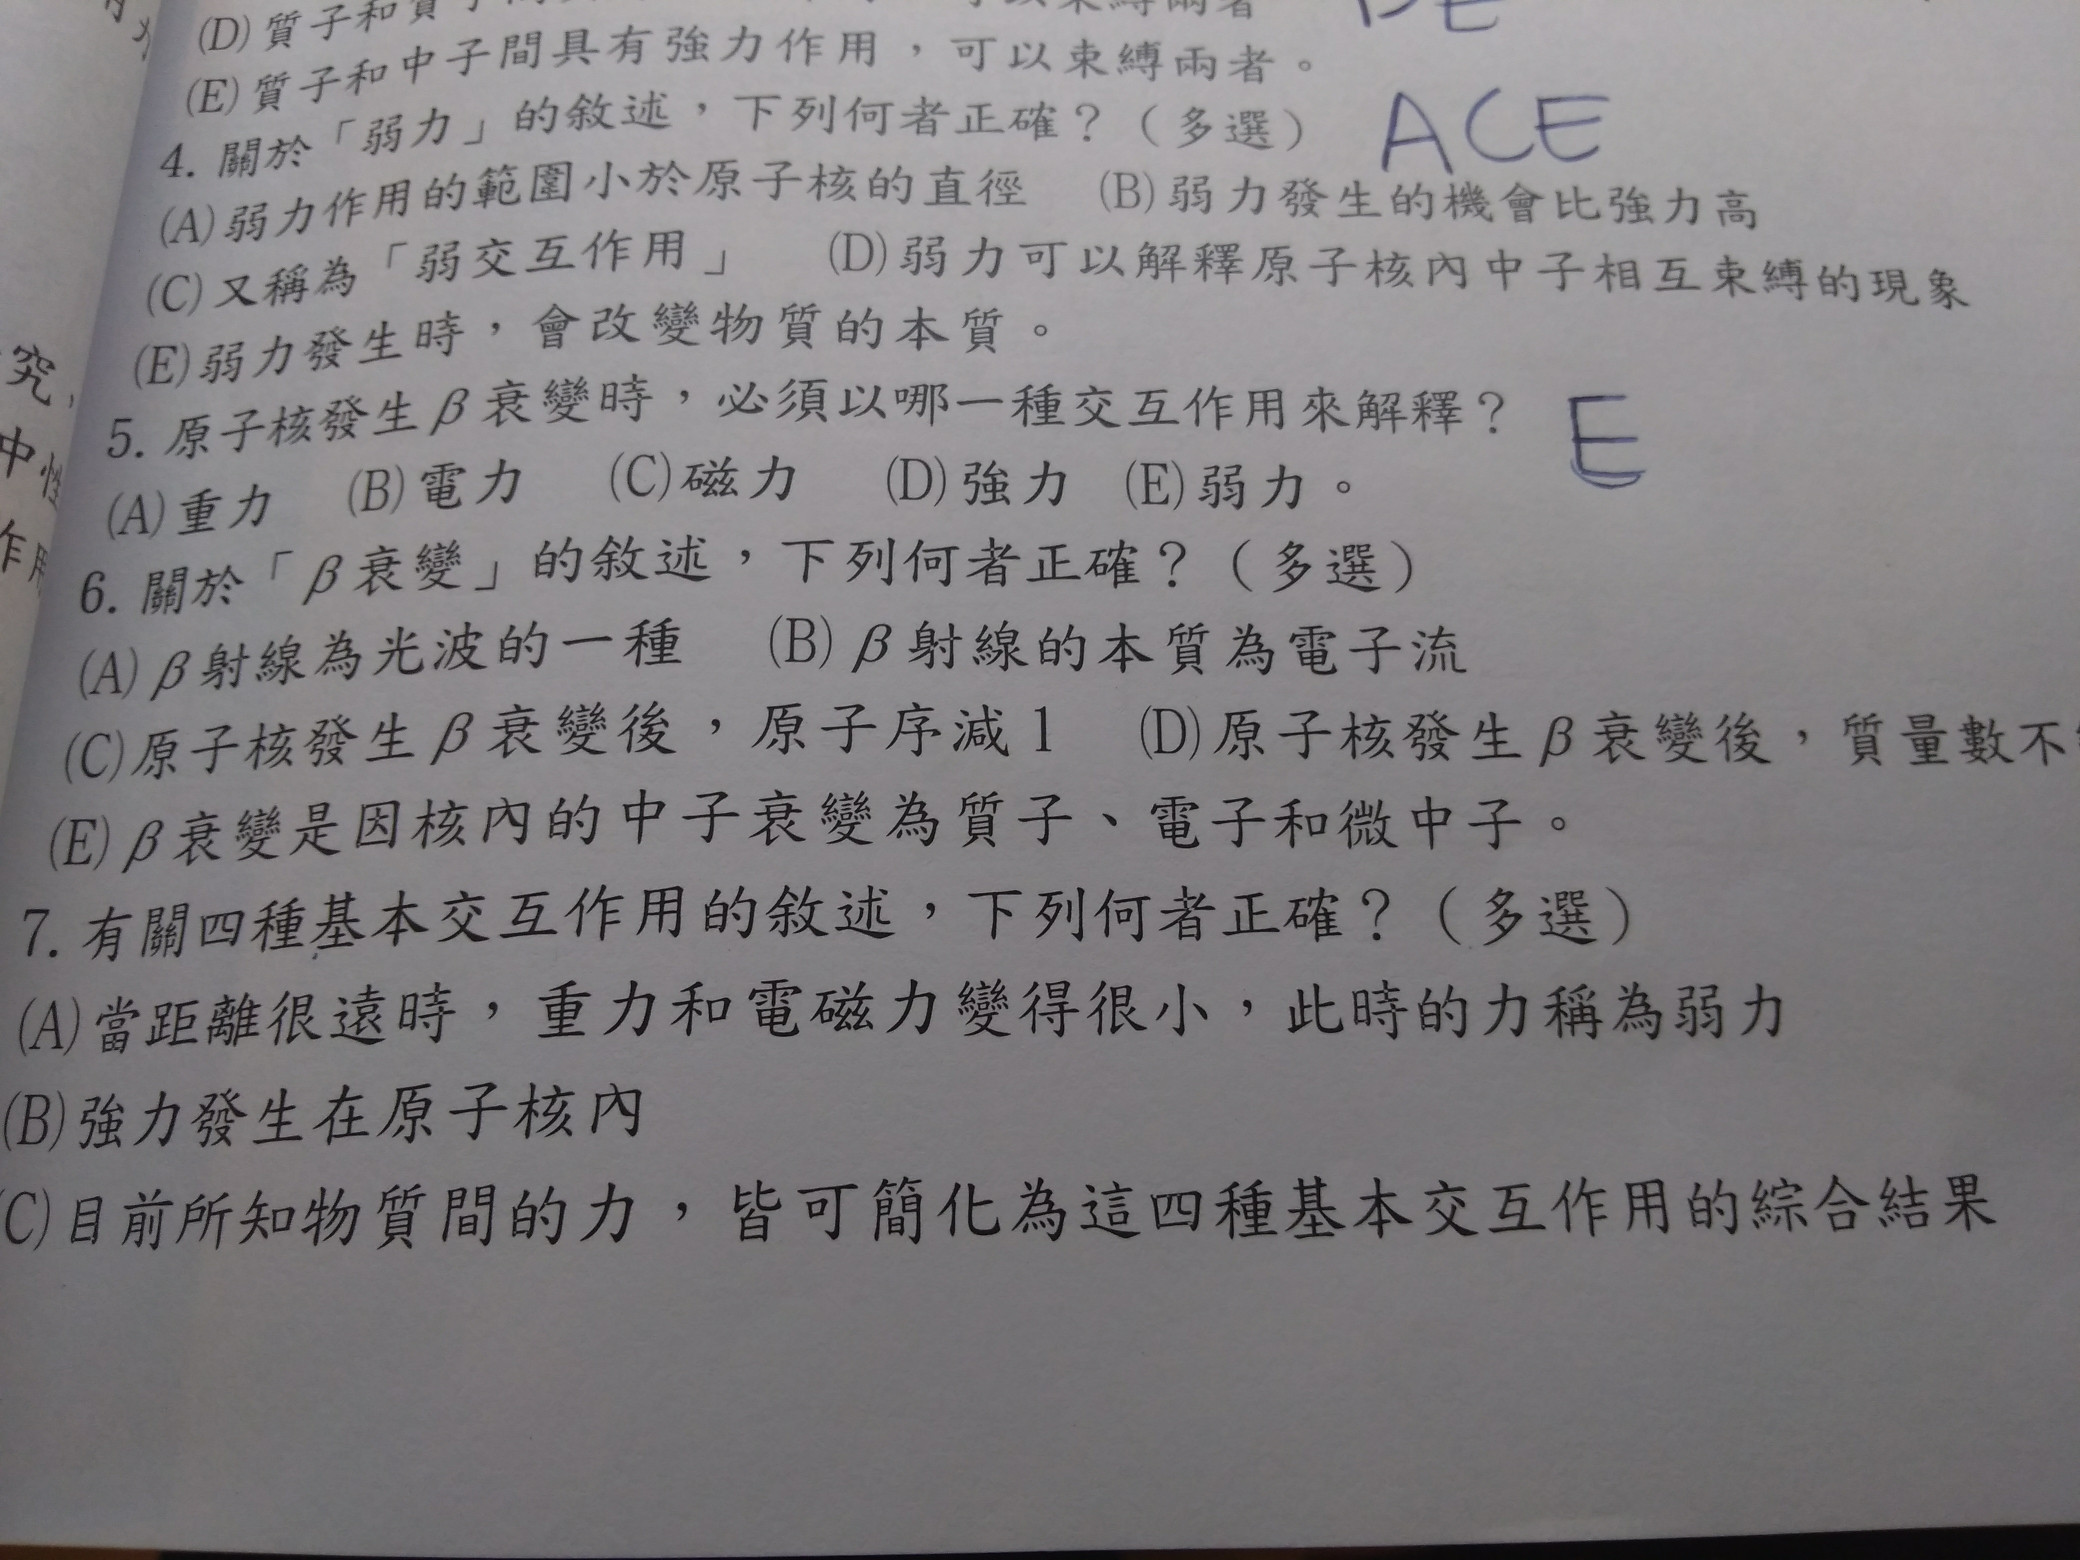 (D)質子和質子間
DE
(E)質子和中子間具有強力作用，可以束縛兩者。
4. 關於「弱力」的敘述，下列何者正確？（多選） ACE
(A)弱力作用的範圍小於原子核的直徑 (B)弱力發生的機會比強力高
(C)又稱為「弱交互作用」 (D)弱力可以解釋原子核內中子相互束縛的現象
(E)弱力發生時，會改變物質的本質。
5. 原子核發生β衰變時，必須以哪一種交互作用來解釋？ E
(A)重力 (B)電力 (C)磁力 (D)強力 (E)弱力。
6. 關於「β衰變」的敘述，下列何者正確？（多選）
(A)β射線為光波的一種 (B)β射線的本質為電子流
(C)原子核發生β衰變後，原子序減1 (D)原子核發生β衰變後，質量數不
(E)β衰變是因核內的中子衰變為質子、電子和微中子。
7. 有關四種基本交互作用的敘述，下列何者正確？（多選）
(A)當距離很遠時，重力和電磁力變得很小，此時的力稱為弱力
(B)強力發生在原子核內
(C)目前所知物質間的力，皆可簡化為這四種基本交互作用的綜合結果
究，
中性
作用